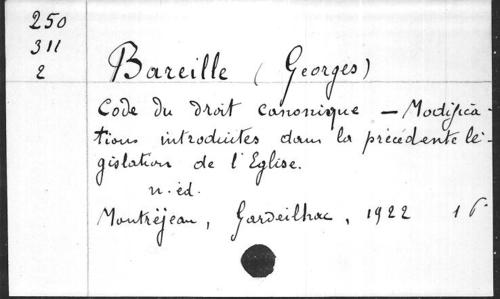 250
311
2
Bareille (Georges)
Code du droit canonique — Modifica-
tions introduites dans la précédente lé-
gislation de l'Eglise.
n. éd.
Montréjeau, Gardeilhac, 1922 16°